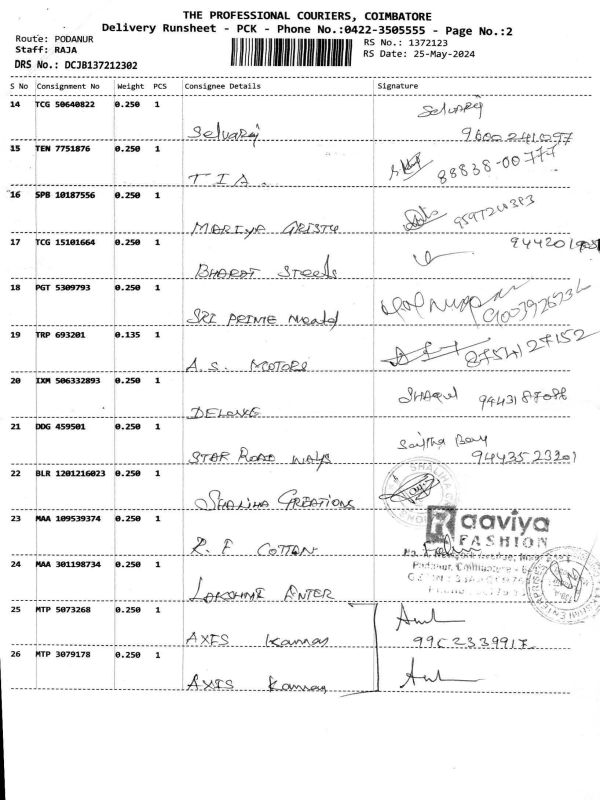 THE PROFESSIONAL COURIERS, COIMBATORE
Delivery Runsheet - PCK - Phone No.:0422-3505555 - Page No.:2
Route: PODANUR
RS No.: 1372123
Staff: RAJA
RS Date: 25-May-2024
DRS No.: DCJB137212302
S No Consignment No Weight PCS Consignee Details Signature
14 TCG 50640822 0.250 1
Selvaraj
Selvaraj
9600241097
15 TEN 7751876 0.250 1
T I A.
88838-00777
16 SPB 10187556 0.250 1
MARIYA
17 TCG 15101664 0.250 1
BHARAT Steels
18 PGT 5309793 0.250 1
SRI PRIME
19 TRP 693201 0.135 1
A.S. MOTORS
8754127152
20 IXM 506332893 0.250 1
21 DDG 459501 0.250 1
STAR ROAD WAYS
9443523201
22 BLR 1201216023 0.250 1
SHALIHA CREATIONS
23 MAA 109539374 0.250 1
R. F COTTON
Raaviya
FASHION
24 MAA 301198734 0.250 1
LAKSHMI ENTER
25 MTP 5073268 0.250 1
AXIS Kannan
9902339917
26 MTP 3079178 0.250 1
AXIS Kannan